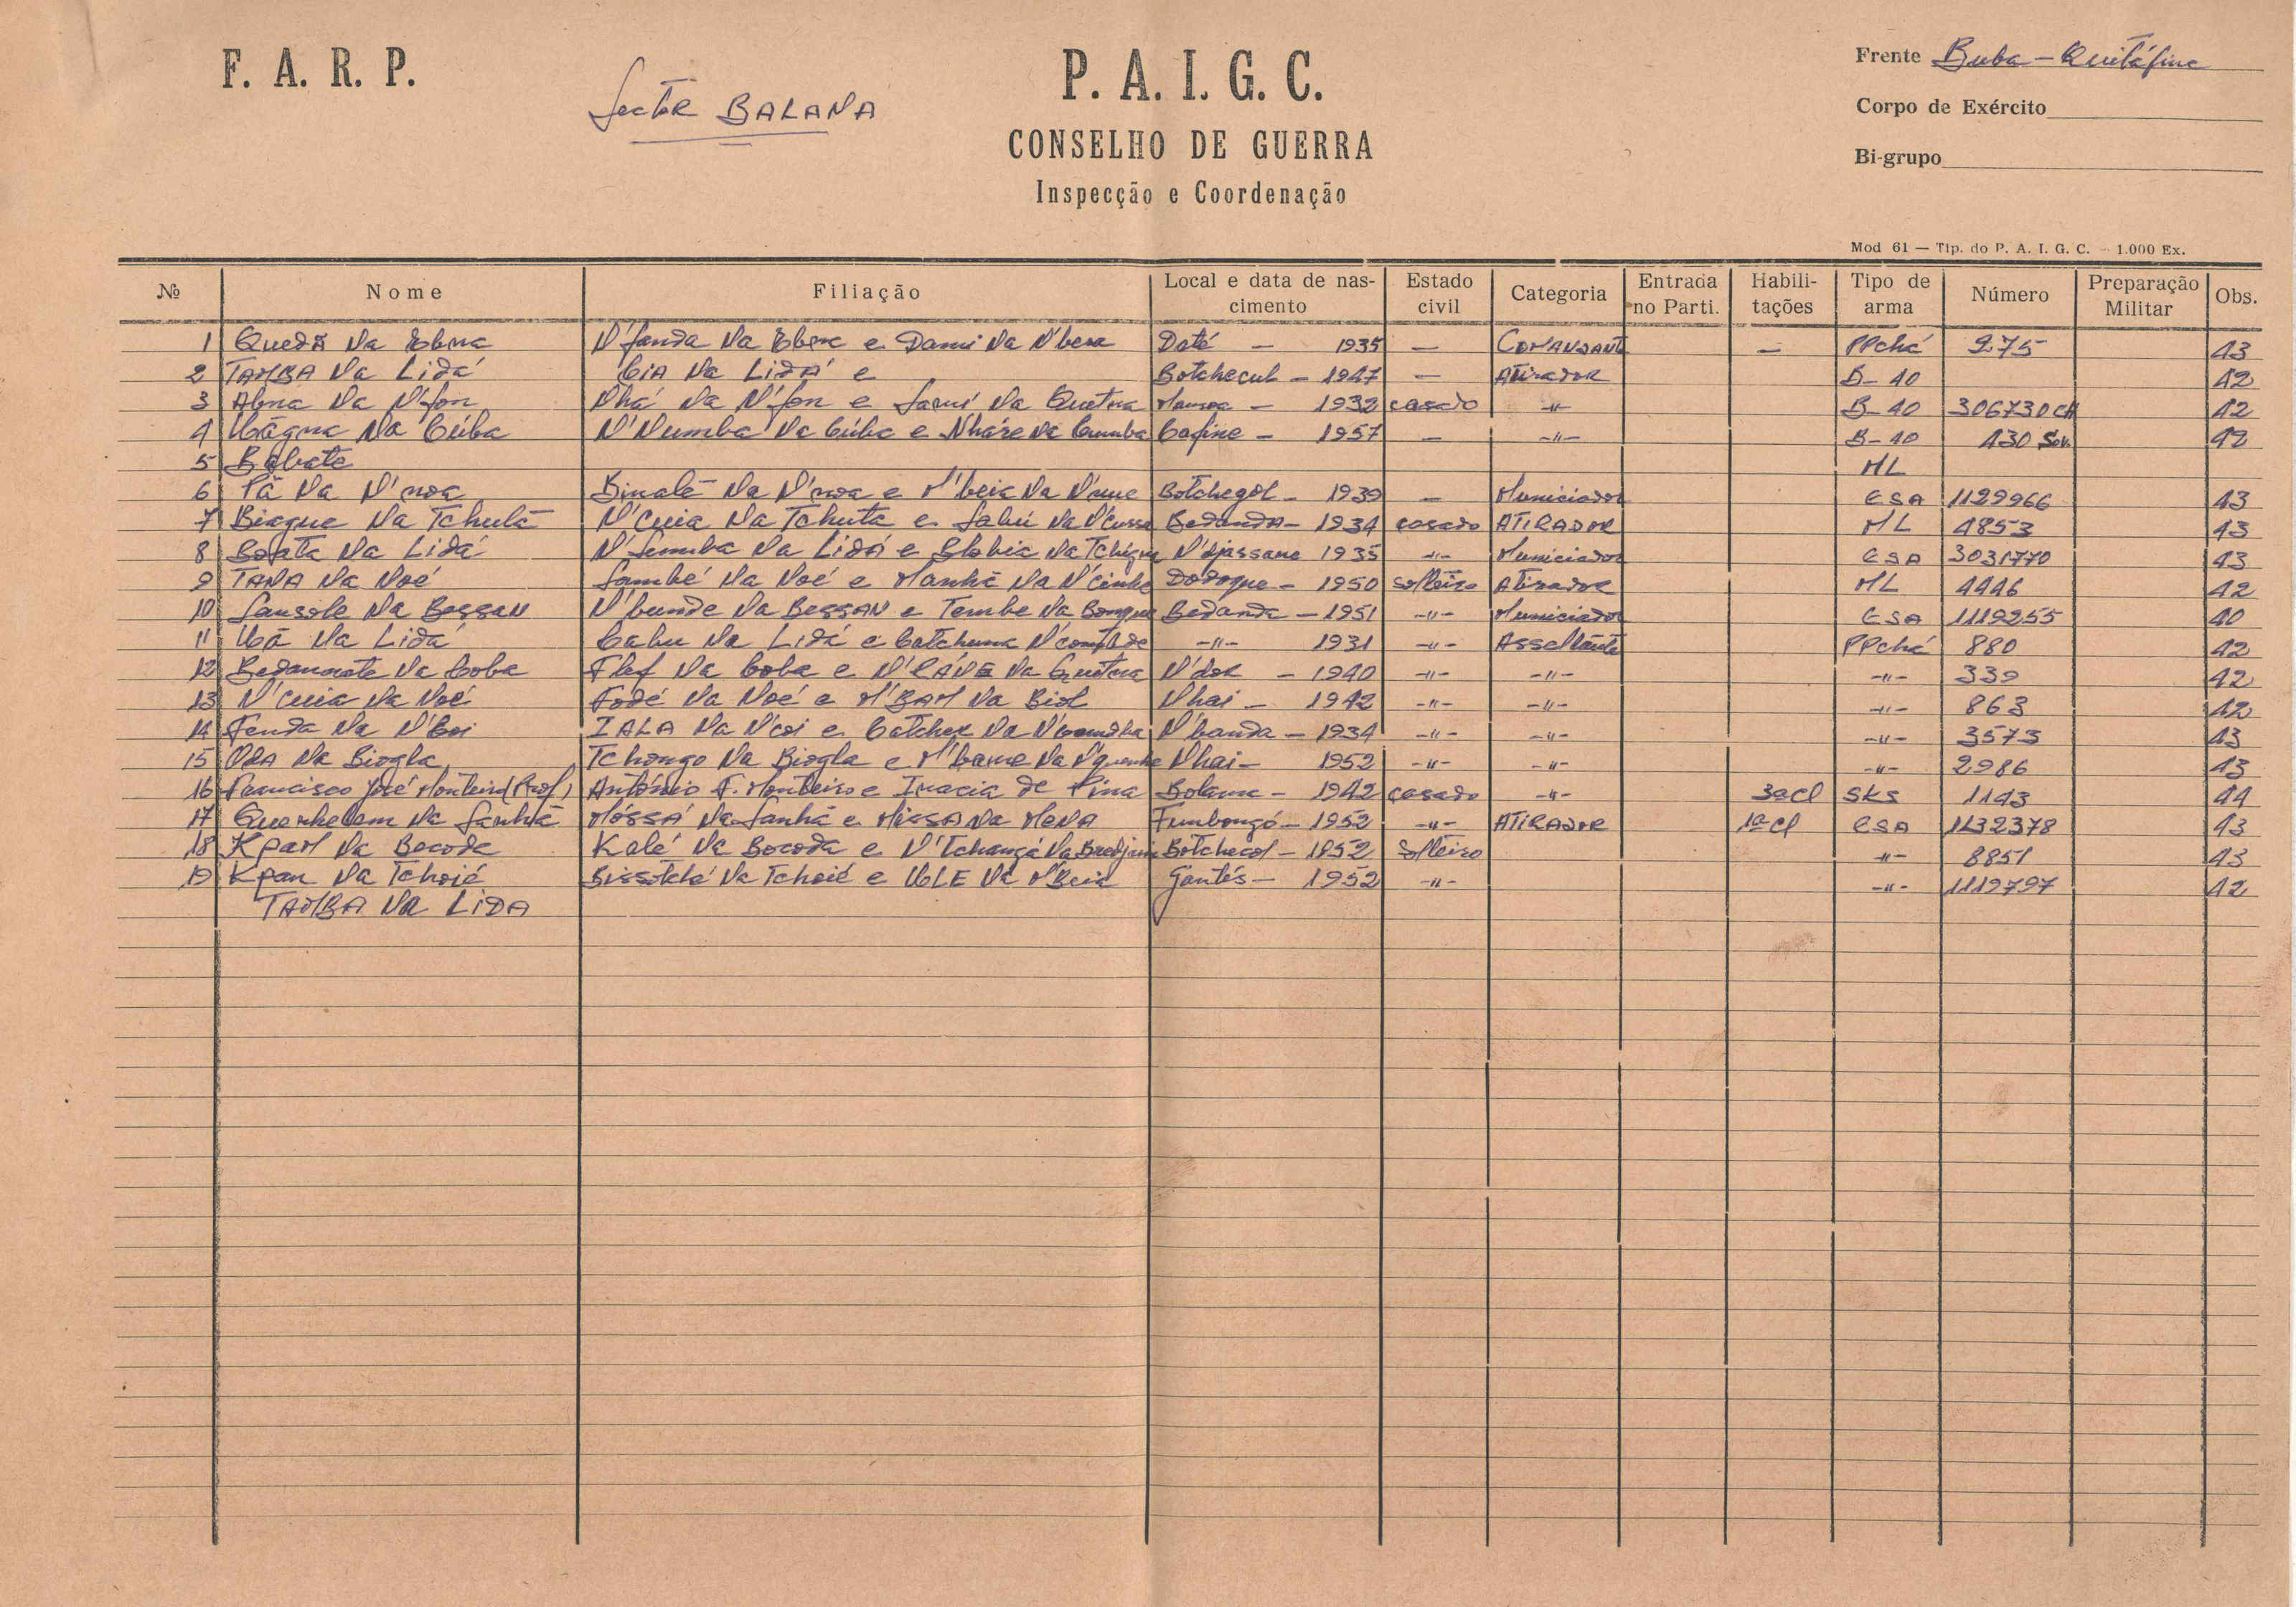 F. A. R. P.
Sector BALANA
P. A. I. G. C.
CONSELHO DE GUERRA
Inspecção e Coordenação
Frente Buba - Quitáfine
Corpo de Exército
Bi-grupo
Mod 61 — Tip. do P. A. I. G. C. - 1.000 Ex.
№ Nome Filiação Local e data de nascimento Estado civil Categoria Entrada no Parti. Habilitações Tipo de arma Número Preparação Militar Obs.
1 Quedã Na Ebna N'fanda Na Ebna e Dami Na N'bena Daté - 1935 — COMANDANTE — PPchá 275 43
2 TAMBA Na Lidá Cia Na LIDÁ e Botchecul - 1947 — Atirador B-10 42
3 Abna Na N'fon Nhá Na N'fon e Na Quetna Mansoa - 1932 casado -"- B-10 306730 CH 42
4 Na Cúba N'Numba Na Cúba e Nháre Na Cumba Cafine - 1957 — -"- B-10 430 Sov. 42
5 Babate ML
6 Pã Na N'noa Binalé Na N'noa e M'beia Na Botchegol - 1939 — Municiador CSA 1129966 43
7 Biague Na Tchutã N'Cuia Na Tchuta e Sabú Na Bedanda - 1934 casado ATIRADOR ML 4853 43
8 Boata Na Lidá Na Lidá e Blabia Na N'djassane 1935 -"- Municiador CSA 3031770 43
9 TANA Na Noé Sambé Na Noé e Manhã Na Dodoque - 1950 solteiro Atirador ML 4446 42
10 Sansole Na Bessan N'bunde Na BESSAN e Tembe Na Bongue Bedanda - 1951 -"- Municiador CSA 1119255 40
11 Uá Na Lidá Cabu Na Lidá e Catchuma -"- 1931 -"- Assaltante PPchá 880 42
12 Na Coba Flef Na Coba e Na Quetna N'dor - 1940 -"- -"- -"- 339 42
13 N'Cuia Na Noé Fodé Na Noé e M'BAM Na Biol Nhai - 1942 -"- -"- -"- 863 42
14 Fenda Na N'Coi IALA Na N'coi e Catcher Na N'banda - 1934 -"- -"- -"- 3573 43
15 ODA Na Biogla Tchongo Na Biogla e M'bame Na Nhai - 1952 -"- -"- -"- 2986 43
16 Francisco José Monteiro (Prof.) António F. Monteiro e Inacia de Pina Bolama - 1942 casado -"- 3ª cl SKS 1143 44
17 Quenhelem Na Sanhã MÓSSÁ Na Sanhã e MISSA Na MENA Fumbongó - 1952 -"- ATIRADOR 1ª cl CSA 1132378 43
18 KPAM Na Bocoda Kalé Na Bocoda e N'Tchangá Na Botchecol - 1952 Solteiro -"- 8851 43
19 Kpan Na Tchoié Bissotché Na Tchoié e ULE Na M'Beia Gantés - 1952 -"- -"- 1119797 42
TAMBA Na LIDA